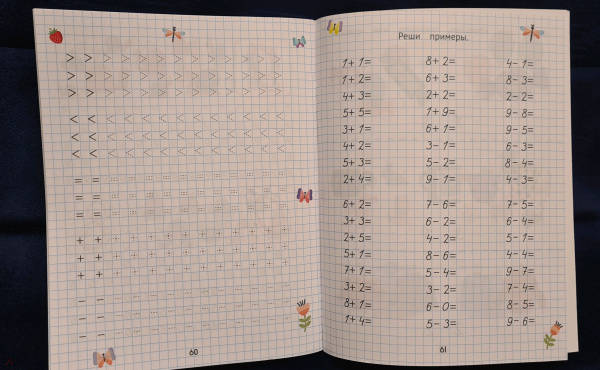 > > > > > > > > > > > > >
> > > > > > > > > > > > >
> > > > > > > > > > > > >
< < < < < < < < < < < < <
< < < < < < < < < < < < <
< < < < < < < < < < < < <
= = = = = = = = = = = = =
= = = = = = = = = = = = =
= = = = = = = = = = = = =
+ + + + + + + + + + + + +
+ + + + + + + + + + + + +
+ + + + + + + + + + + + +
− − − − − − − − − − − − −
− − − − − − − − − − − − −
− − − − − − − − − − − − −
60
Реши примеры.
1+ 1= 8+ 2= 4− 1=
1+ 2= 6+ 3= 8− 3=
4+ 3= 2+ 2= 2− 2=
5+ 5= 1+ 9= 9− 8=
3+ 1= 6+ 1= 9− 5=
4+ 2= 3− 1= 6− 3=
5+ 3= 5− 2= 8− 4=
2+ 4= 9− 1= 4− 3=
6+ 2= 7− 6= 7− 5=
3+ 3= 6− 2= 6− 4=
2+ 5= 4− 2= 5− 1=
5+ 1= 8− 6= 4− 4=
7+ 1= 5− 4= 9− 7=
3+ 2= 3− 2= 7− 4=
8+ 1= 6− 0= 8− 5=
1+ 4= 5− 3= 9− 6=
61